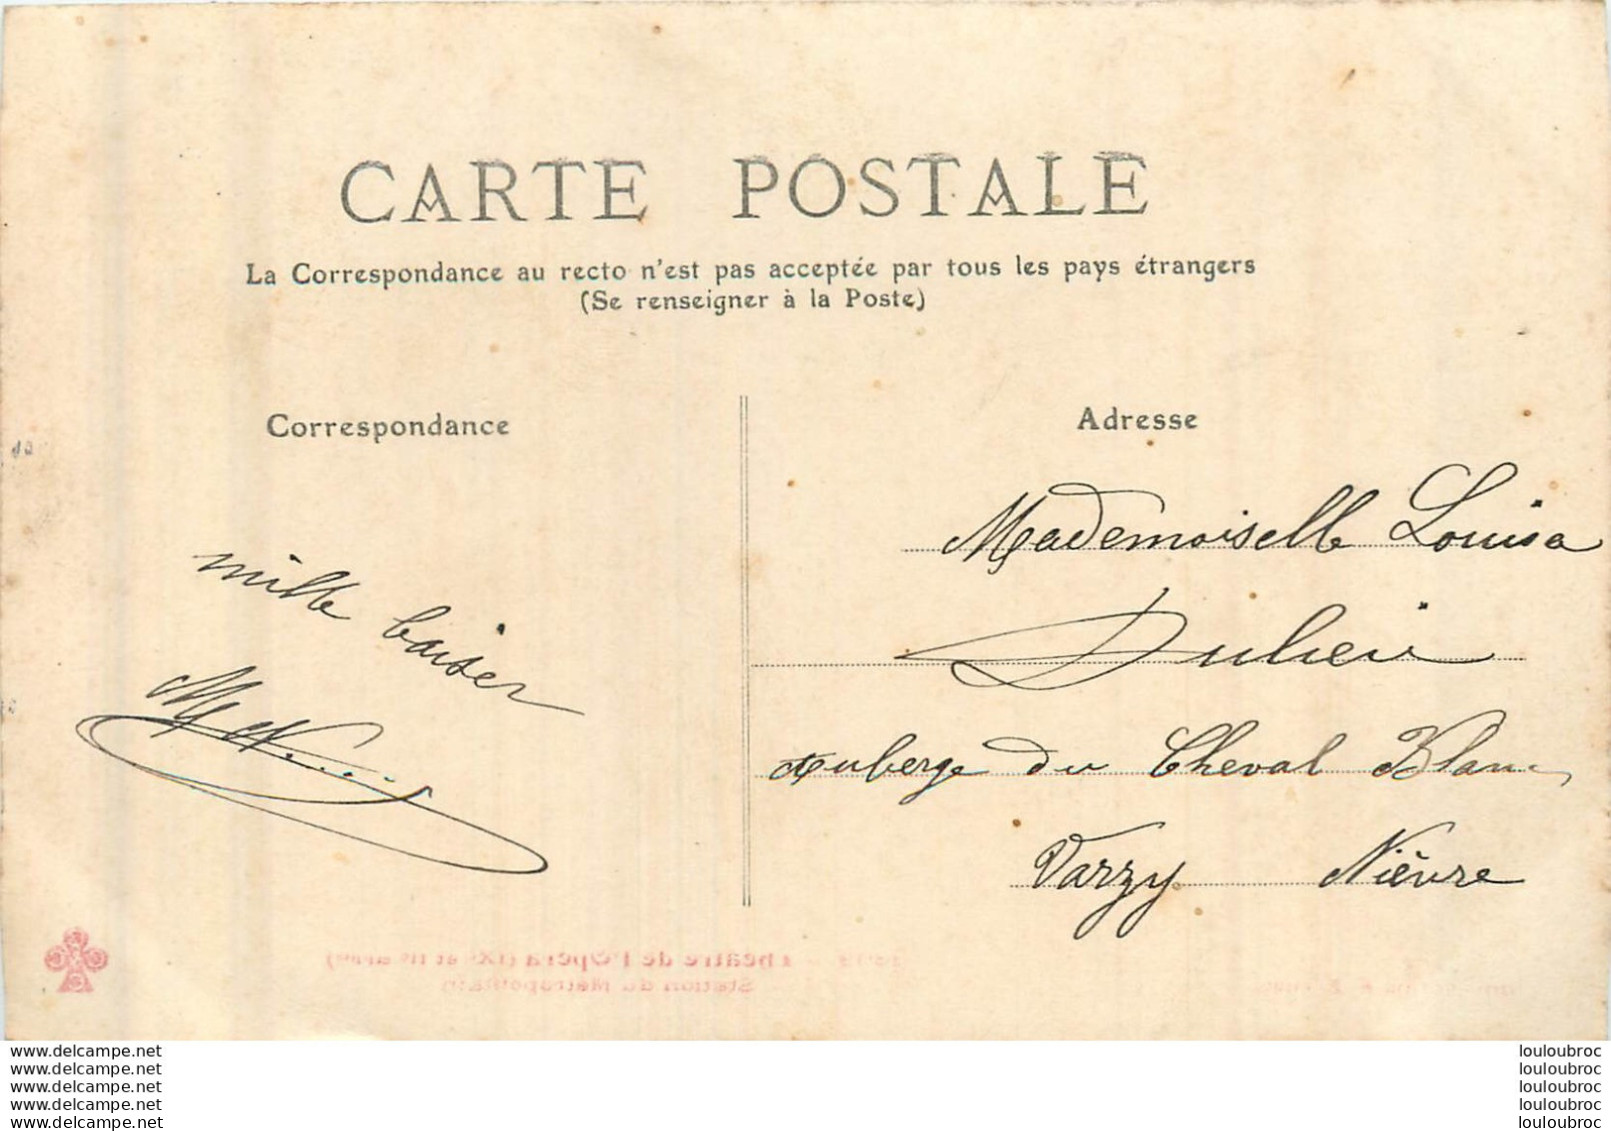 CARTE POSTALE
La Correspondance au recto n'est pas acceptée par tous les pays étrangers
(Se renseigner à la Poste)
Correspondance
mille baiser
Adresse
Mademoiselle Louisa
Auberge du Cheval Blanc
Varzy Nièvre
Théâtre de l'Opéra (IXe et IIe arrt)
Station du Métropolitain
www.delcampe.net
www.delcampe.net
www.delcampe.net
www.delcampe.net
www.delcampe.net
louloubroc
louloubroc
louloubroc
louloubroc
louloubroc